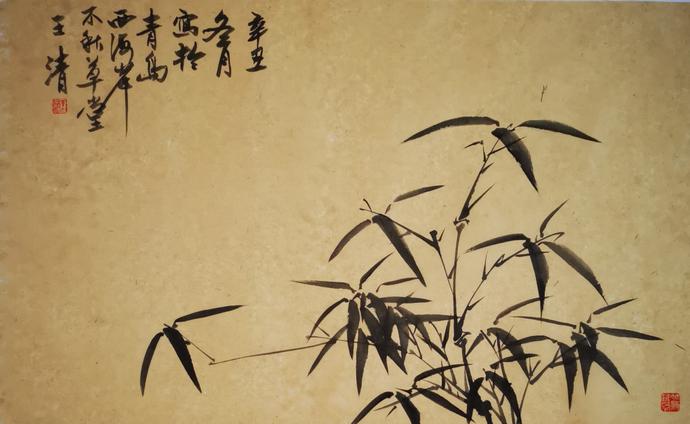 辛丑
冬月
写於
青島
西海岸
不秋草堂
王清